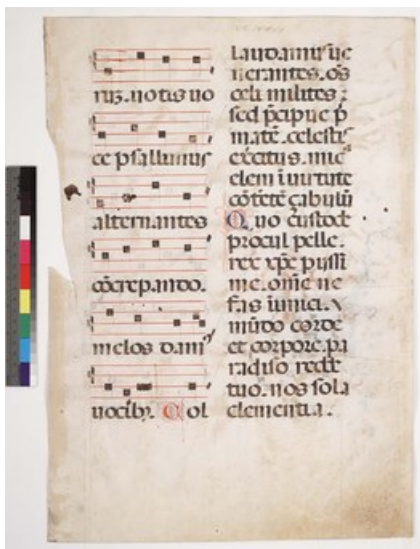 rum. uotis uo
ce psallimus
alternantes
cōcrepando.
melos dam᷒
uocibꝫ. Col
laudamus ue
nerantes. os
celi milites :
sed p̄cipue p̄
matē. celestis
exercitus. mic
elem ī uirtute
cōtetē zabulū
Quo custode
procul pelle.
rex xp̄e pyssi
me. om̄e ne
fas īnimici. Y
mūdo corde
et corpore. pa
radiso redde
tuo. nos sola
clementia.